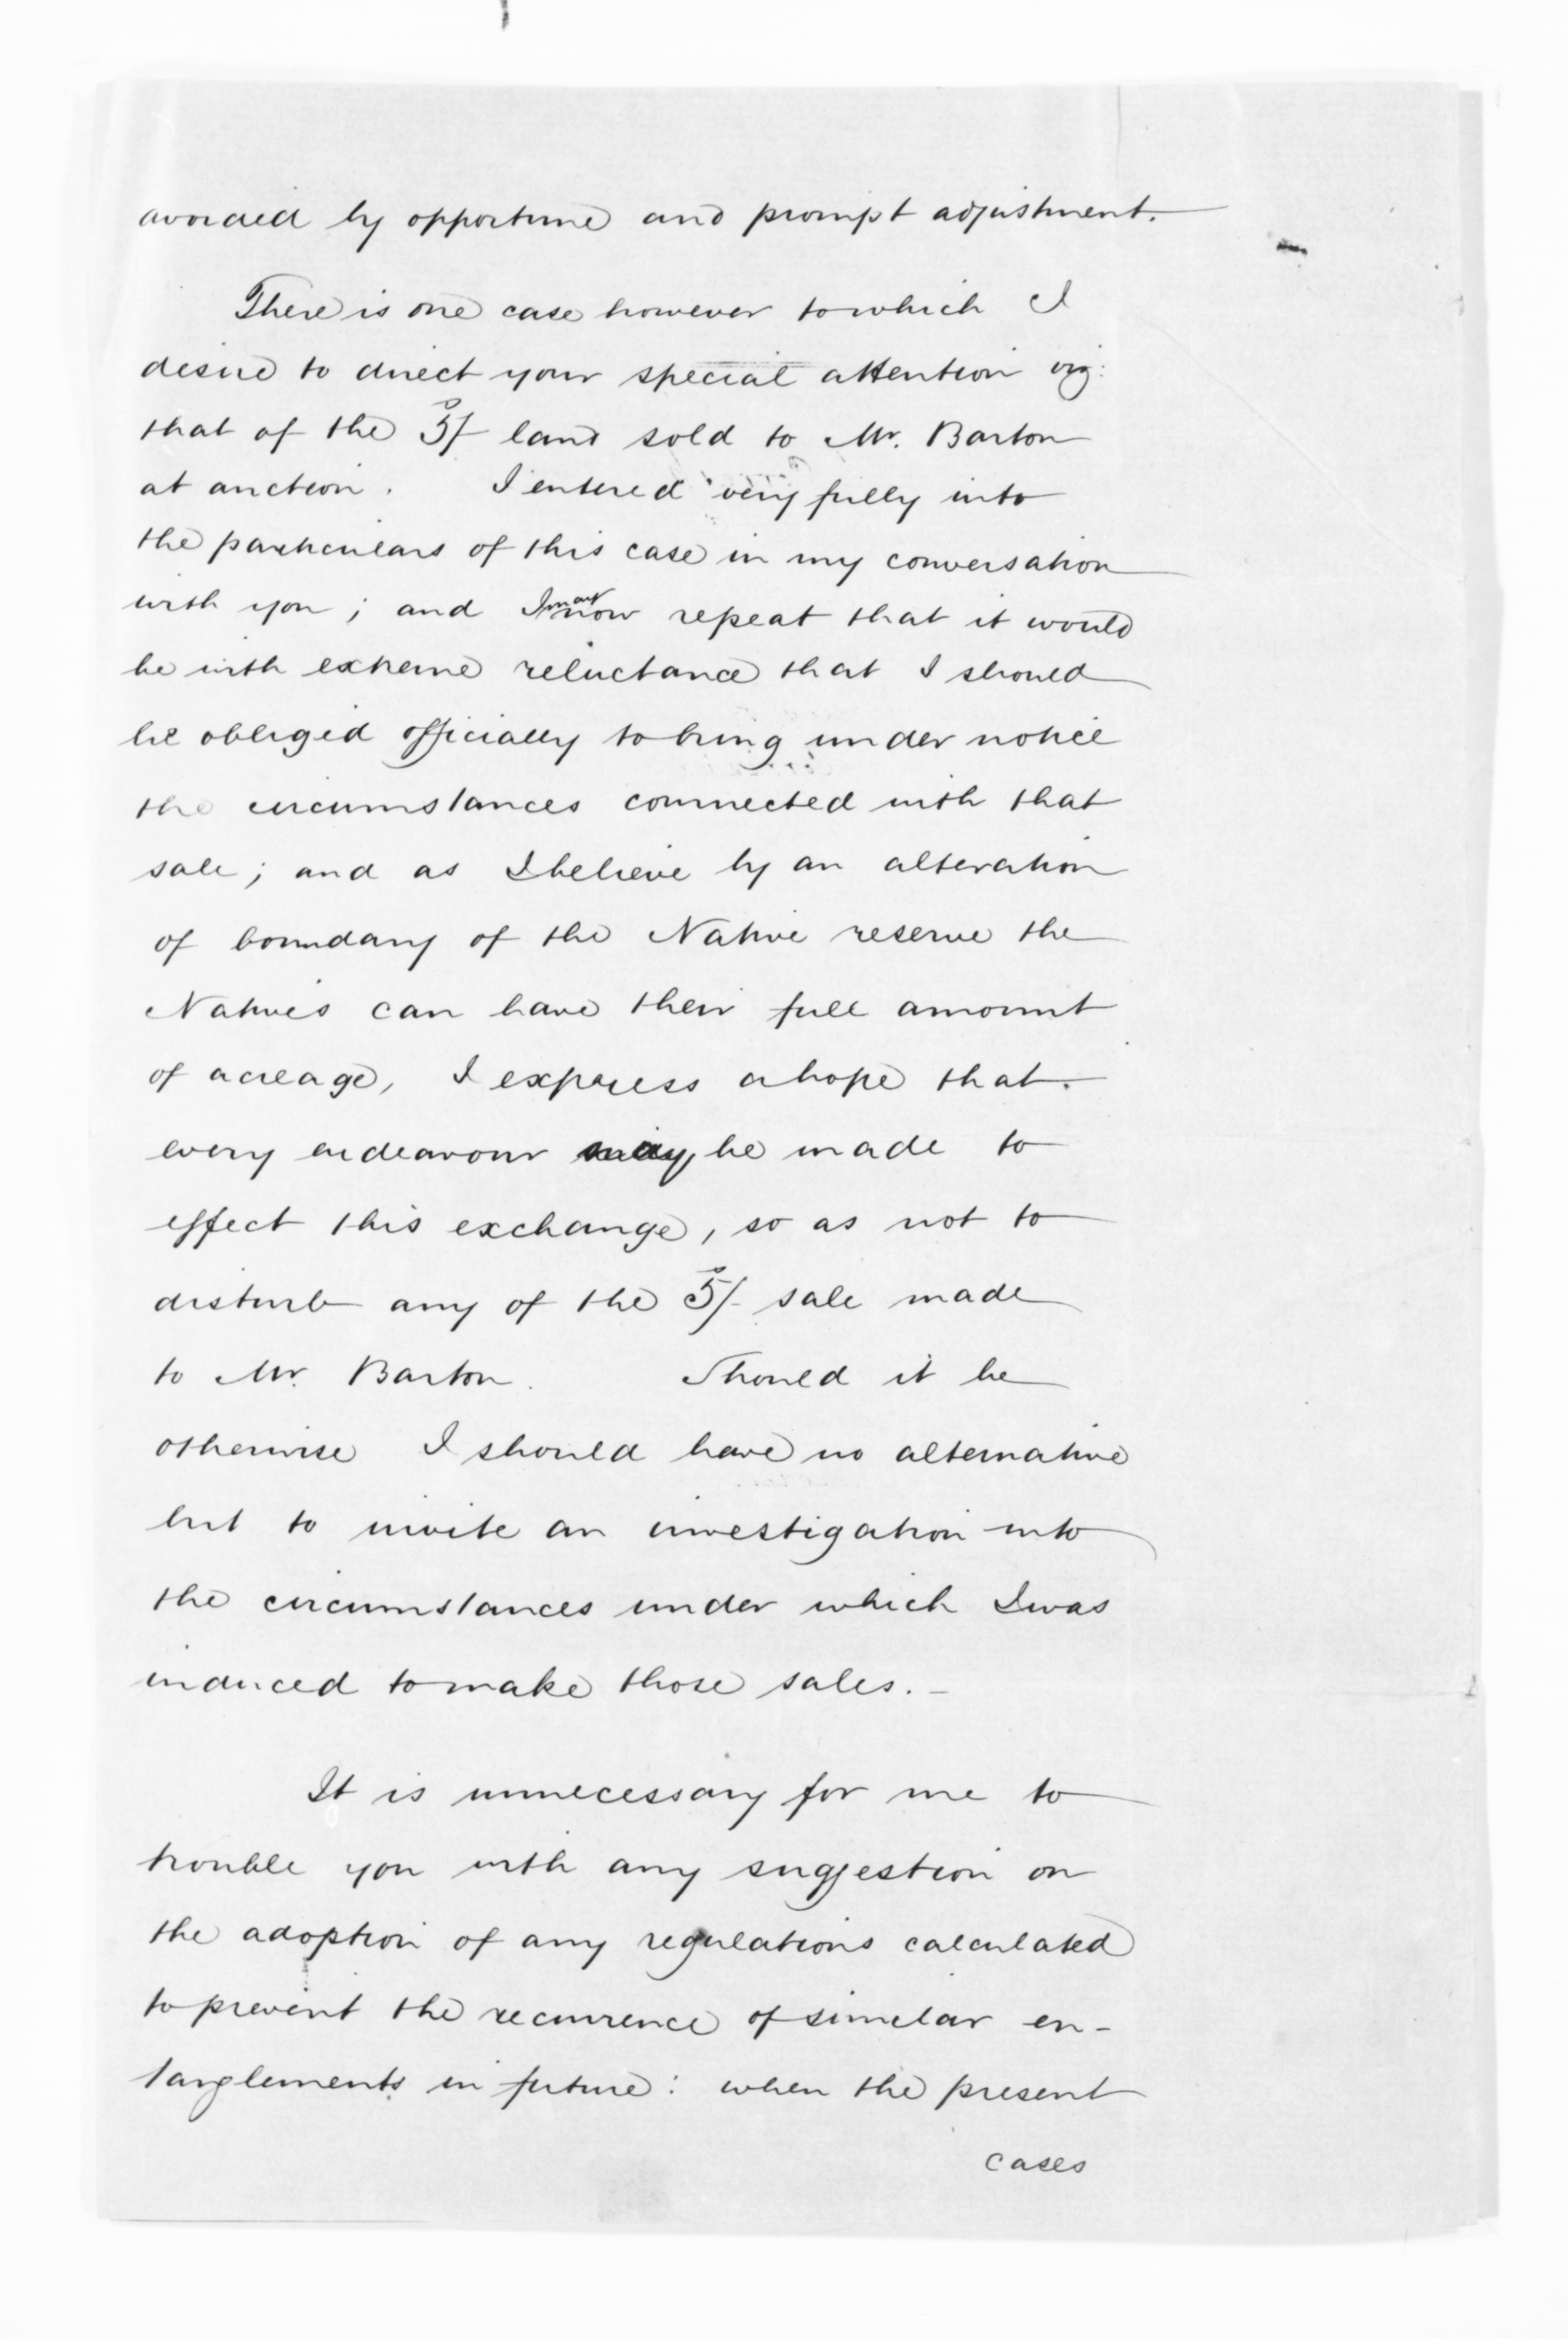 avoided by opportune and prompt adjustment.
There is one case however to which I
desire to direct your special attention viz:
that of the 5/- land sold to Mr. Barton
at auction. I entered very fully into
the particulars of this case in my conversation
with you; and I may now repeat that it would
be with extreme reluctance that I should
be obliged officially to bring under notice
the circumstances connected with that
sale; and as I believe by an alteration
of boundary of the Native reserve the
Natives can have their full amount
of acreage, I express a hope that
every endeavour may be made to
effect this exchange, so as not to
disturb any of the 5/- sale made
to Mr. Barton. Should it be
otherwise I should have no alternative
but to invite an investigation into
the circumstances under which I was
induced to make those sales. -
It is unnecessary for me to
trouble you with any suggestion on
the adoption of any regulations calculated
to prevent the recurrence of similar en-
tanglements in future: when the present
cases